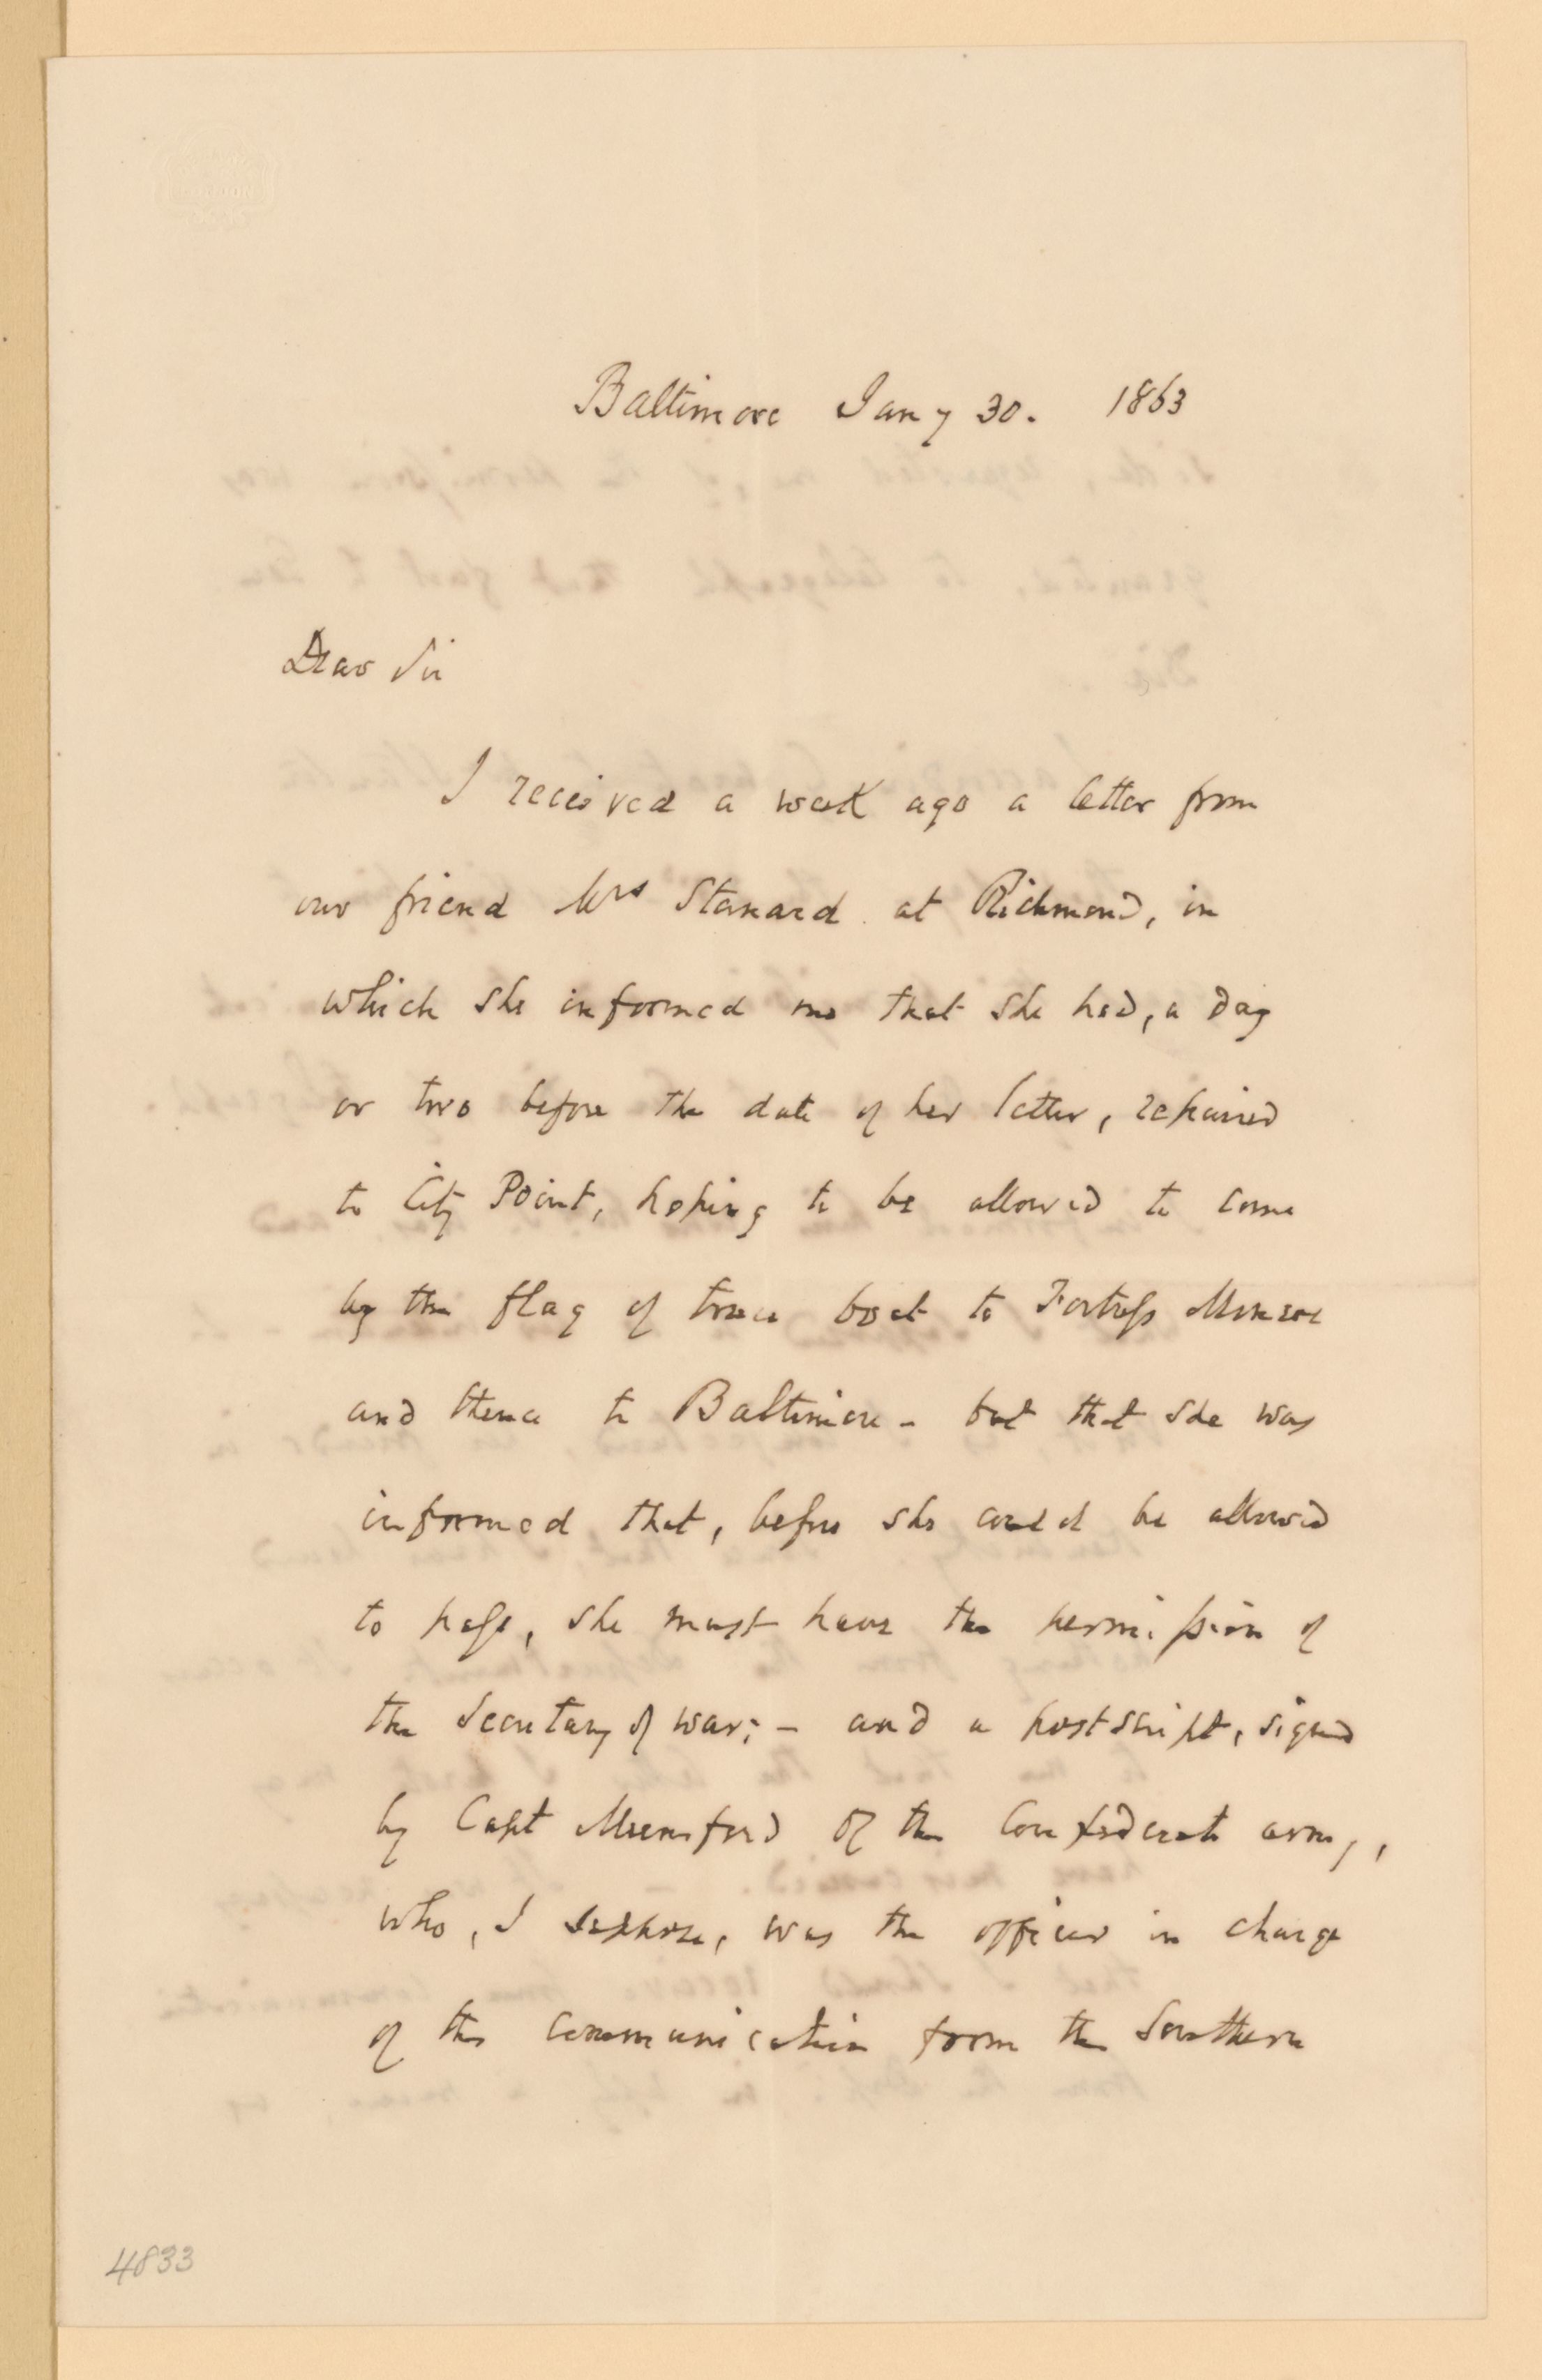 Baltimore Jany 30. 1863
Dear Sir
I received a week ago a letter from
our friend Mrs Stanard at Richmond, in
which she informed me that she had, a day
or two before the date of her letter, repaired
to City Point, hoping to be allowed to come
by the flag of truce boat to Fortress Monroe
and thence to Baltimore - but that she was
informed that, before she could be allowed
to pass, she must have the permission of
the Secretary of war; - and a postscript, signed
by Capt Mumford of the Confederate army,
who, I suppose, was the officer in charge
of the communication from the Southern
4833